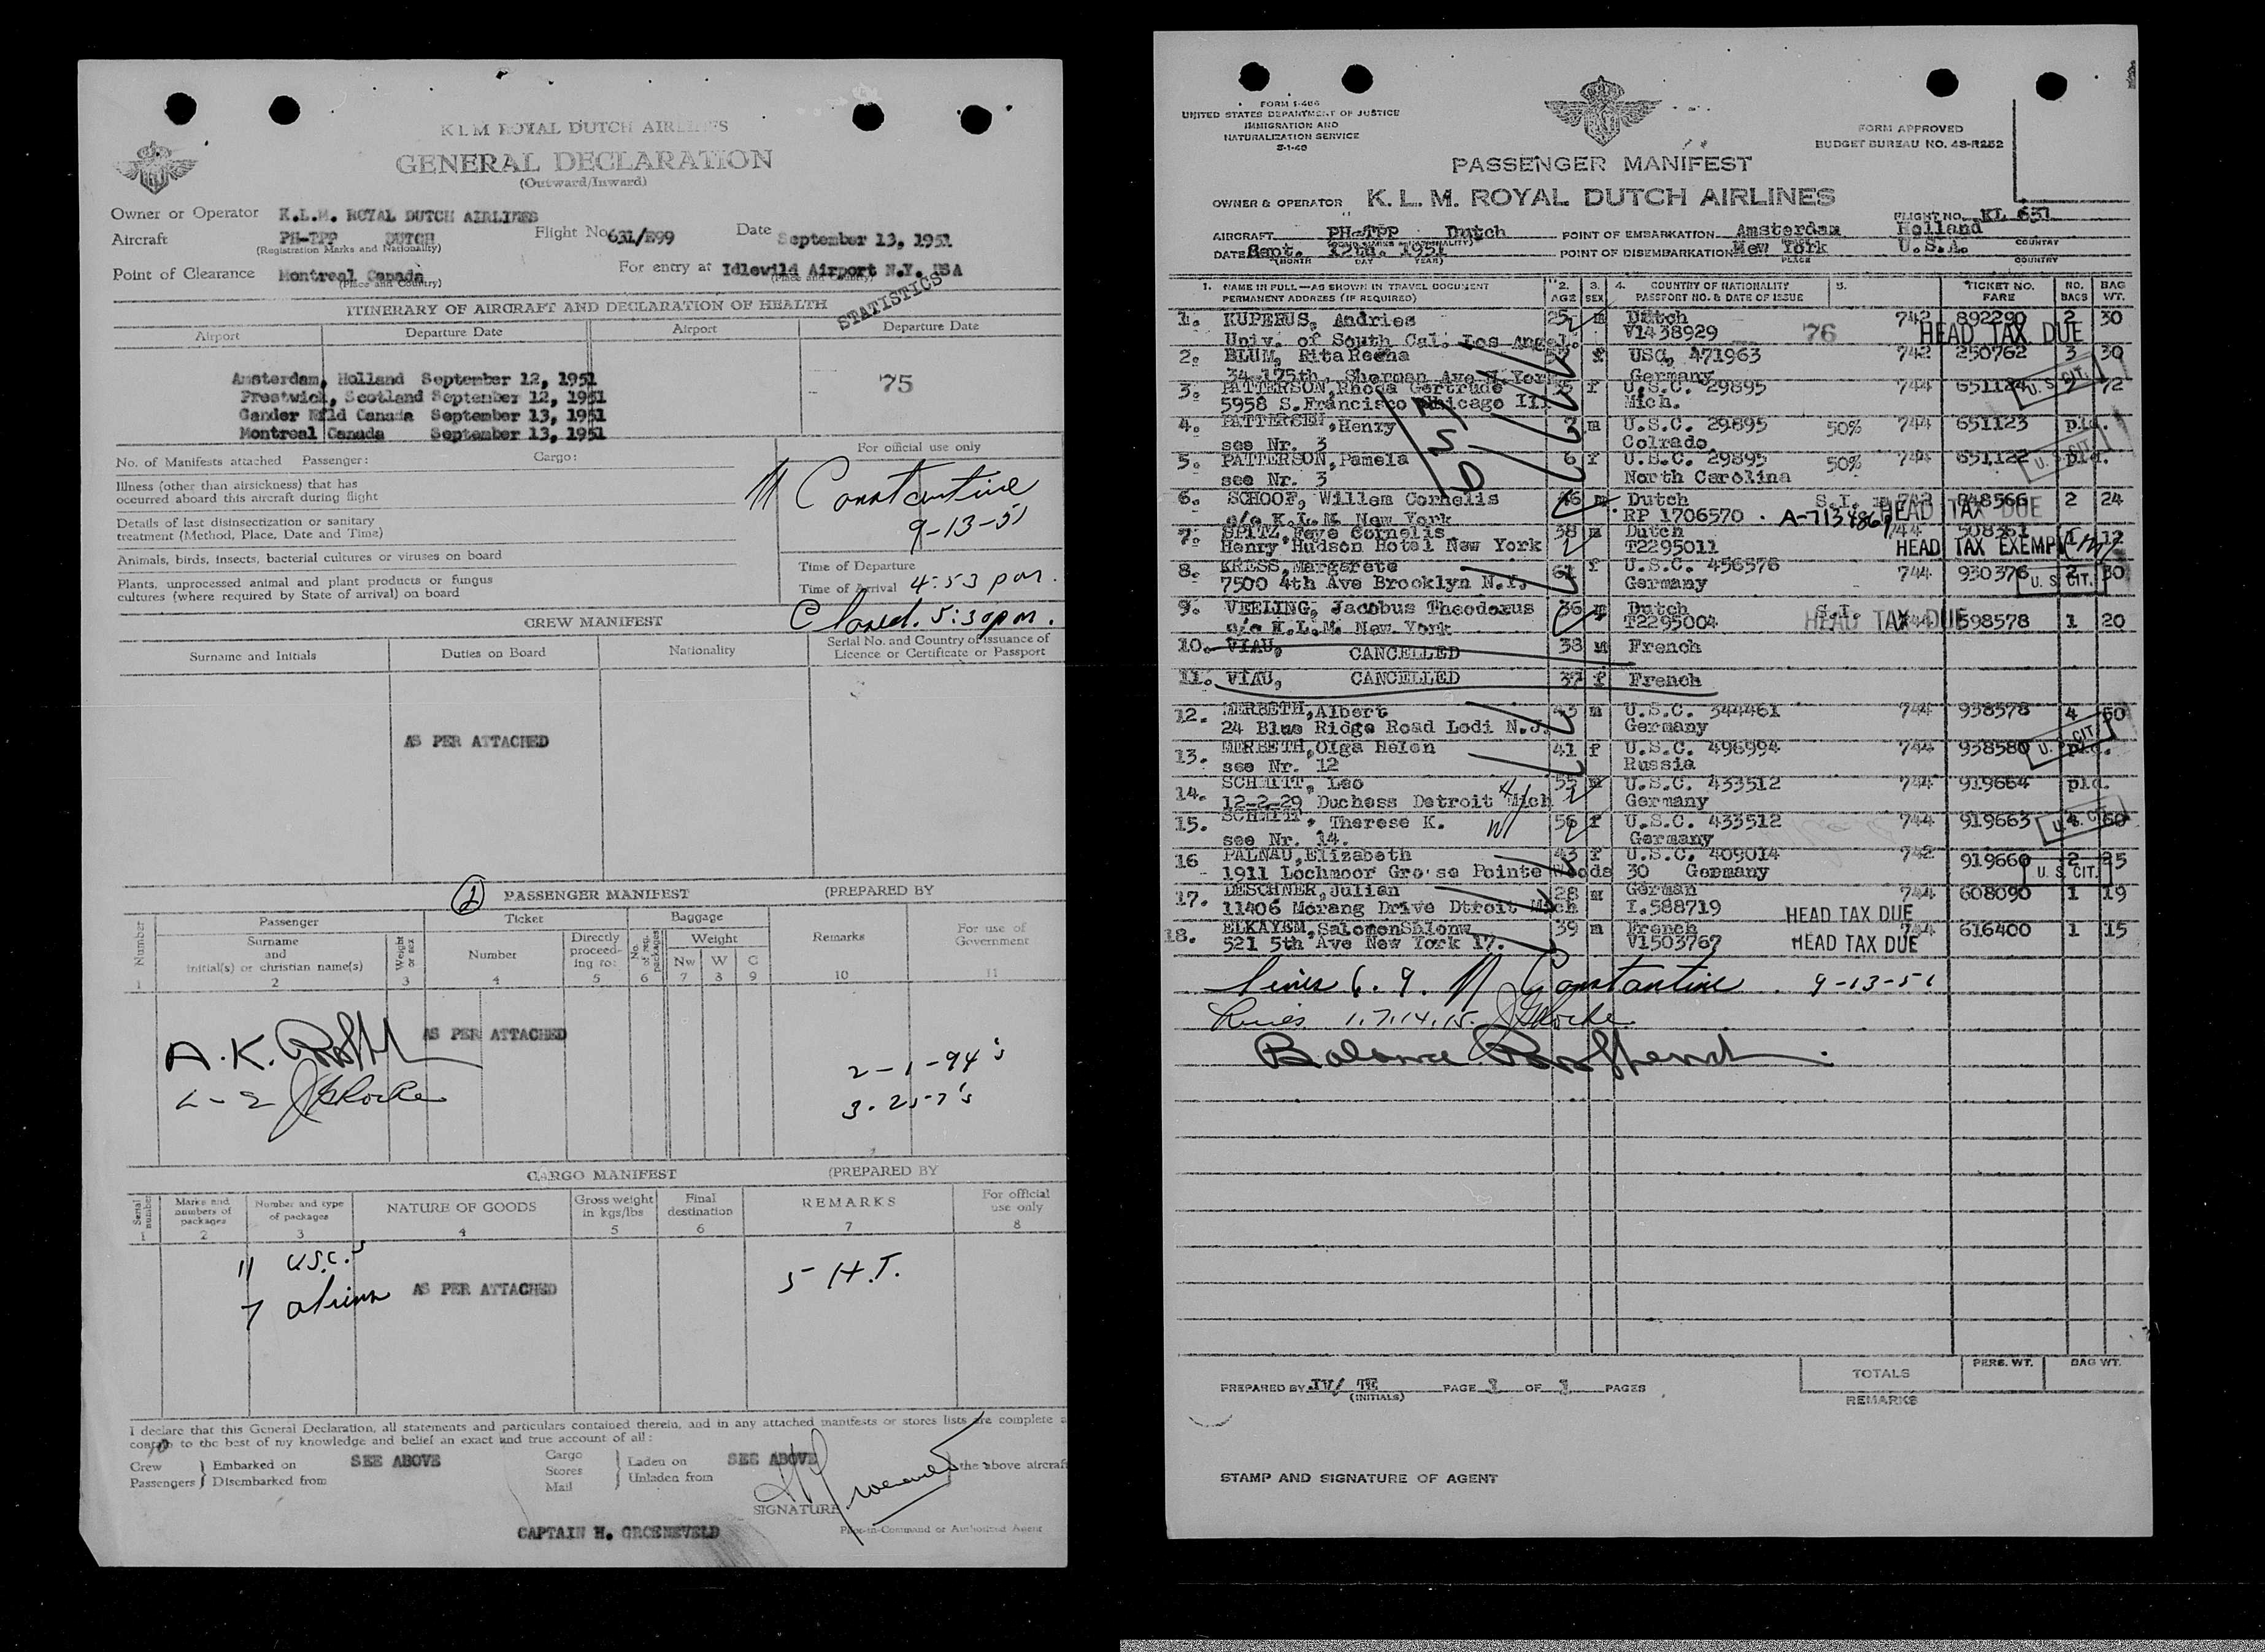 K L M ROYAL DUTCH AIRLINES
GENERAL DECLARATION
(Outward/Inward)
Owner or Operator K.L.M. ROYAL DUTCH AIRLINES
Aircraft PH-TPP DUTCH Flight No 631/E99 Date September 13, 1951
(Registration Marks and Nationality)
Point of Clearance Montreal Canada For entry at Idlewild Airport N.Y. USA
(Place and Country) (Place and Country)
STATISTICS
ITINERARY OF AIRCRAFT AND DECLARATION OF HEALTH
Airport Departure Date Airport Departure Date
Amsterdam, Holland September 12, 1951
75
Prestwick, Scotland September 12, 1951
Gander Fild Canada September 13, 1951
Montreal Canada September 13, 1951
No. of Manifests attached Passenger: Cargo:
For official use only
Illness (other than airsickness) that has
occurred aboard this aircraft during flight
Constantine
9-13-51
Details of last disinsectization or sanitary
treatment (Method, Place, Date and Time)
Animals, birds, insects, bacterial cultures or viruses on board
Plants, unprocessed animal and plant products or fungus
cultures (where required by State of arrival) on board
Time of Departure
Time of Arrival 4:53 pm.
Closed. 5:30 pm.
CREW MANIFEST
Surname and Initials Duties on Board Nationality Serial No. and Country of issuance of
Licence or Certificate or Passport
AS PER ATTACHED
2 PASSENGER MANIFEST (PREPARED BY
Number Passenger Ticket Baggage Remarks For use of
Government
Surname
and
initial(s) or christian name(s)
Weight or sex Number Directly
proceed-
ing to: No. of reg. packages Weight
Nw W C
1 2 3 4 5 6 7 8 9 10 11
A.K.
AS PER ATTACHED
2-1-94's
L-2 J Blocke
3-257's
CARGO MANIFEST (PREPARED BY
Serial number Marks and
numbers of
packages Number and type
of packages NATURE OF GOODS Gross weight
in kgs/lbs Final
destination REMARKS For official
use only
1 2 3 4 5 6 7 8
11 U.S.C.'s
7 aliens AS PER ATTACHED
5 H.T.
I declare that this General Declaration, all statements and particulars contained therein, and in any attached manifests or stores lists are complete a
to the best of my knowledge and belief an exact and true account of all:
10
Crew
Passengers } Embarked on
Disembarked from SEE ABOVE Cargo
Stores
Mail } Laden on
Unladen from SEE ABOVE the above aircraft
SIGNATURE
CAPTAIN H. GROENEVELD
Pilot-in-Command or Authorized Agent
FORM I-466
UNITED STATES DEPARTMENT OF JUSTICE
IMMIGRATION AND
NATURALIZATION SERVICE
FORM APPROVED
BUDGET BUREAU NO. 43-R252
PASSENGER MANIFEST
OWNER & OPERATOR K. L. M. ROYAL DUTCH AIRLINES
FLIGHT NO. KL 631
AIRCRAFT PH-TPP Dutch POINT OF EMBARKATION Amsterdam Holland
DATE Sept. 12th. 1951 POINT OF DISEMBARKATION New York U.S.A.
(MONTH DAY YEAR) PLACE COUNTRY
1. NAME IN FULL—AS SHOWN IN TRAVEL DOCUMENT
PERMANENT ADDRESS (IF REQUIRED) 2. AGE 3. SEX 4. COUNTRY OF NATIONALITY
PASSPORT NO. & DATE OF ISSUE 5. TICKET NO.
FARE NO. BAGS BAG WT.
1. KUPERUS, Andries 25 m Dutch 742 892290 2 30
Univ. of South Cal. Los Angel. V1438929 76 HEAD TAX DUE
2. BLUM, Rita Recha f USC, 471963 742 250762 3 30
34 175th, Sherman Ave N.York Germany
U. S. CIT.
3. PATTERSON, Rhoda Gertrude f U.S.C. 29895 744 651124 72
5958 S.Francisco Chicago Ill Mich.
4. PATTERSEN, Henry 3 m U.S.C. 29895 50% 744 651123 pld.
see Nr. 3 Colrado
5. PATTERSON, Pamela 6 f U.S.C. 29895 50% 744 651122 pld.
see Nr. 3 North Carolina
ASD
6. SCHOOF, Willem Cornelis 46 m Dutch S.I. 742 848566 2 24
c/o K.L.M. New York RP 1706570 . A-7134869 HEAD TAX DUE
7. SPITZ, Feye Cornelis 38 m Dutch 744 508361 1 12
Henry Hudson Hotel New York T2295011 HEAD TAX EXEMPT
8. KRESS, Margarete 61 f U.S.C. 456576 744 930376 2 30
7500 4th Ave Brooklyn N.Y. Germany U. S. CIT.
9. VEELING, Jacobus Theodorus 36 m Dutch S.I. 744 598578 1 20
c/o K.L.M. New York T2295004 HEAD TAX DUE
10. VIAU, CANCELLED 38 m French
11. VIAU, CANCELLED 37 f French
12. MERBETH, Albert 43 m U.S.C. 344461 744 938578 4 60
24 Blue Ridge Road Lodi N.J. Germany
U. S. CIT.
13. MERBETH, Olga Helen 41 f U.S.C. 496994 744 938580 pld.
see Nr. 12 Russia
14. SCHMITT, Leo 55 m U.S.C. 433512 744 919664 pld.
12-2-29 Duchess Detroit Mich Germany
15. SCHMITT, Therese K. 56 f U.S.C. 433512 744 919663 4 60
see Nr. 14. Germany U. S. CIT.
16 PALNAU, Elizabeth 43 f U.S.C. 409014 742 919660 2 25
1911 Lochmoor Gro'se Pointe Woods 30 Germany U. S. CIT.
17. DESCHNER, Julian 28 m German 744 608090 1 19
11406 Morang Drive Dtroit Mich I.588719 HEAD TAX DUE
18. ELKAYEM, Salomon Shlomo 39 m French 744 616400 1 15
521 5th Ave New York 17. V1503767 HEAD TAX DUE
Lines 6. 9. Constantine . 9-13-51
Lines 1.7.14.15. J Blocke
Balance
PREPARED BY JV/ TE PAGE 1 OF 1 PAGES
(INITIALS)
TOTALS PERS. WT. BAG WT.
REMARKS
STAMP AND SIGNATURE OF AGENT